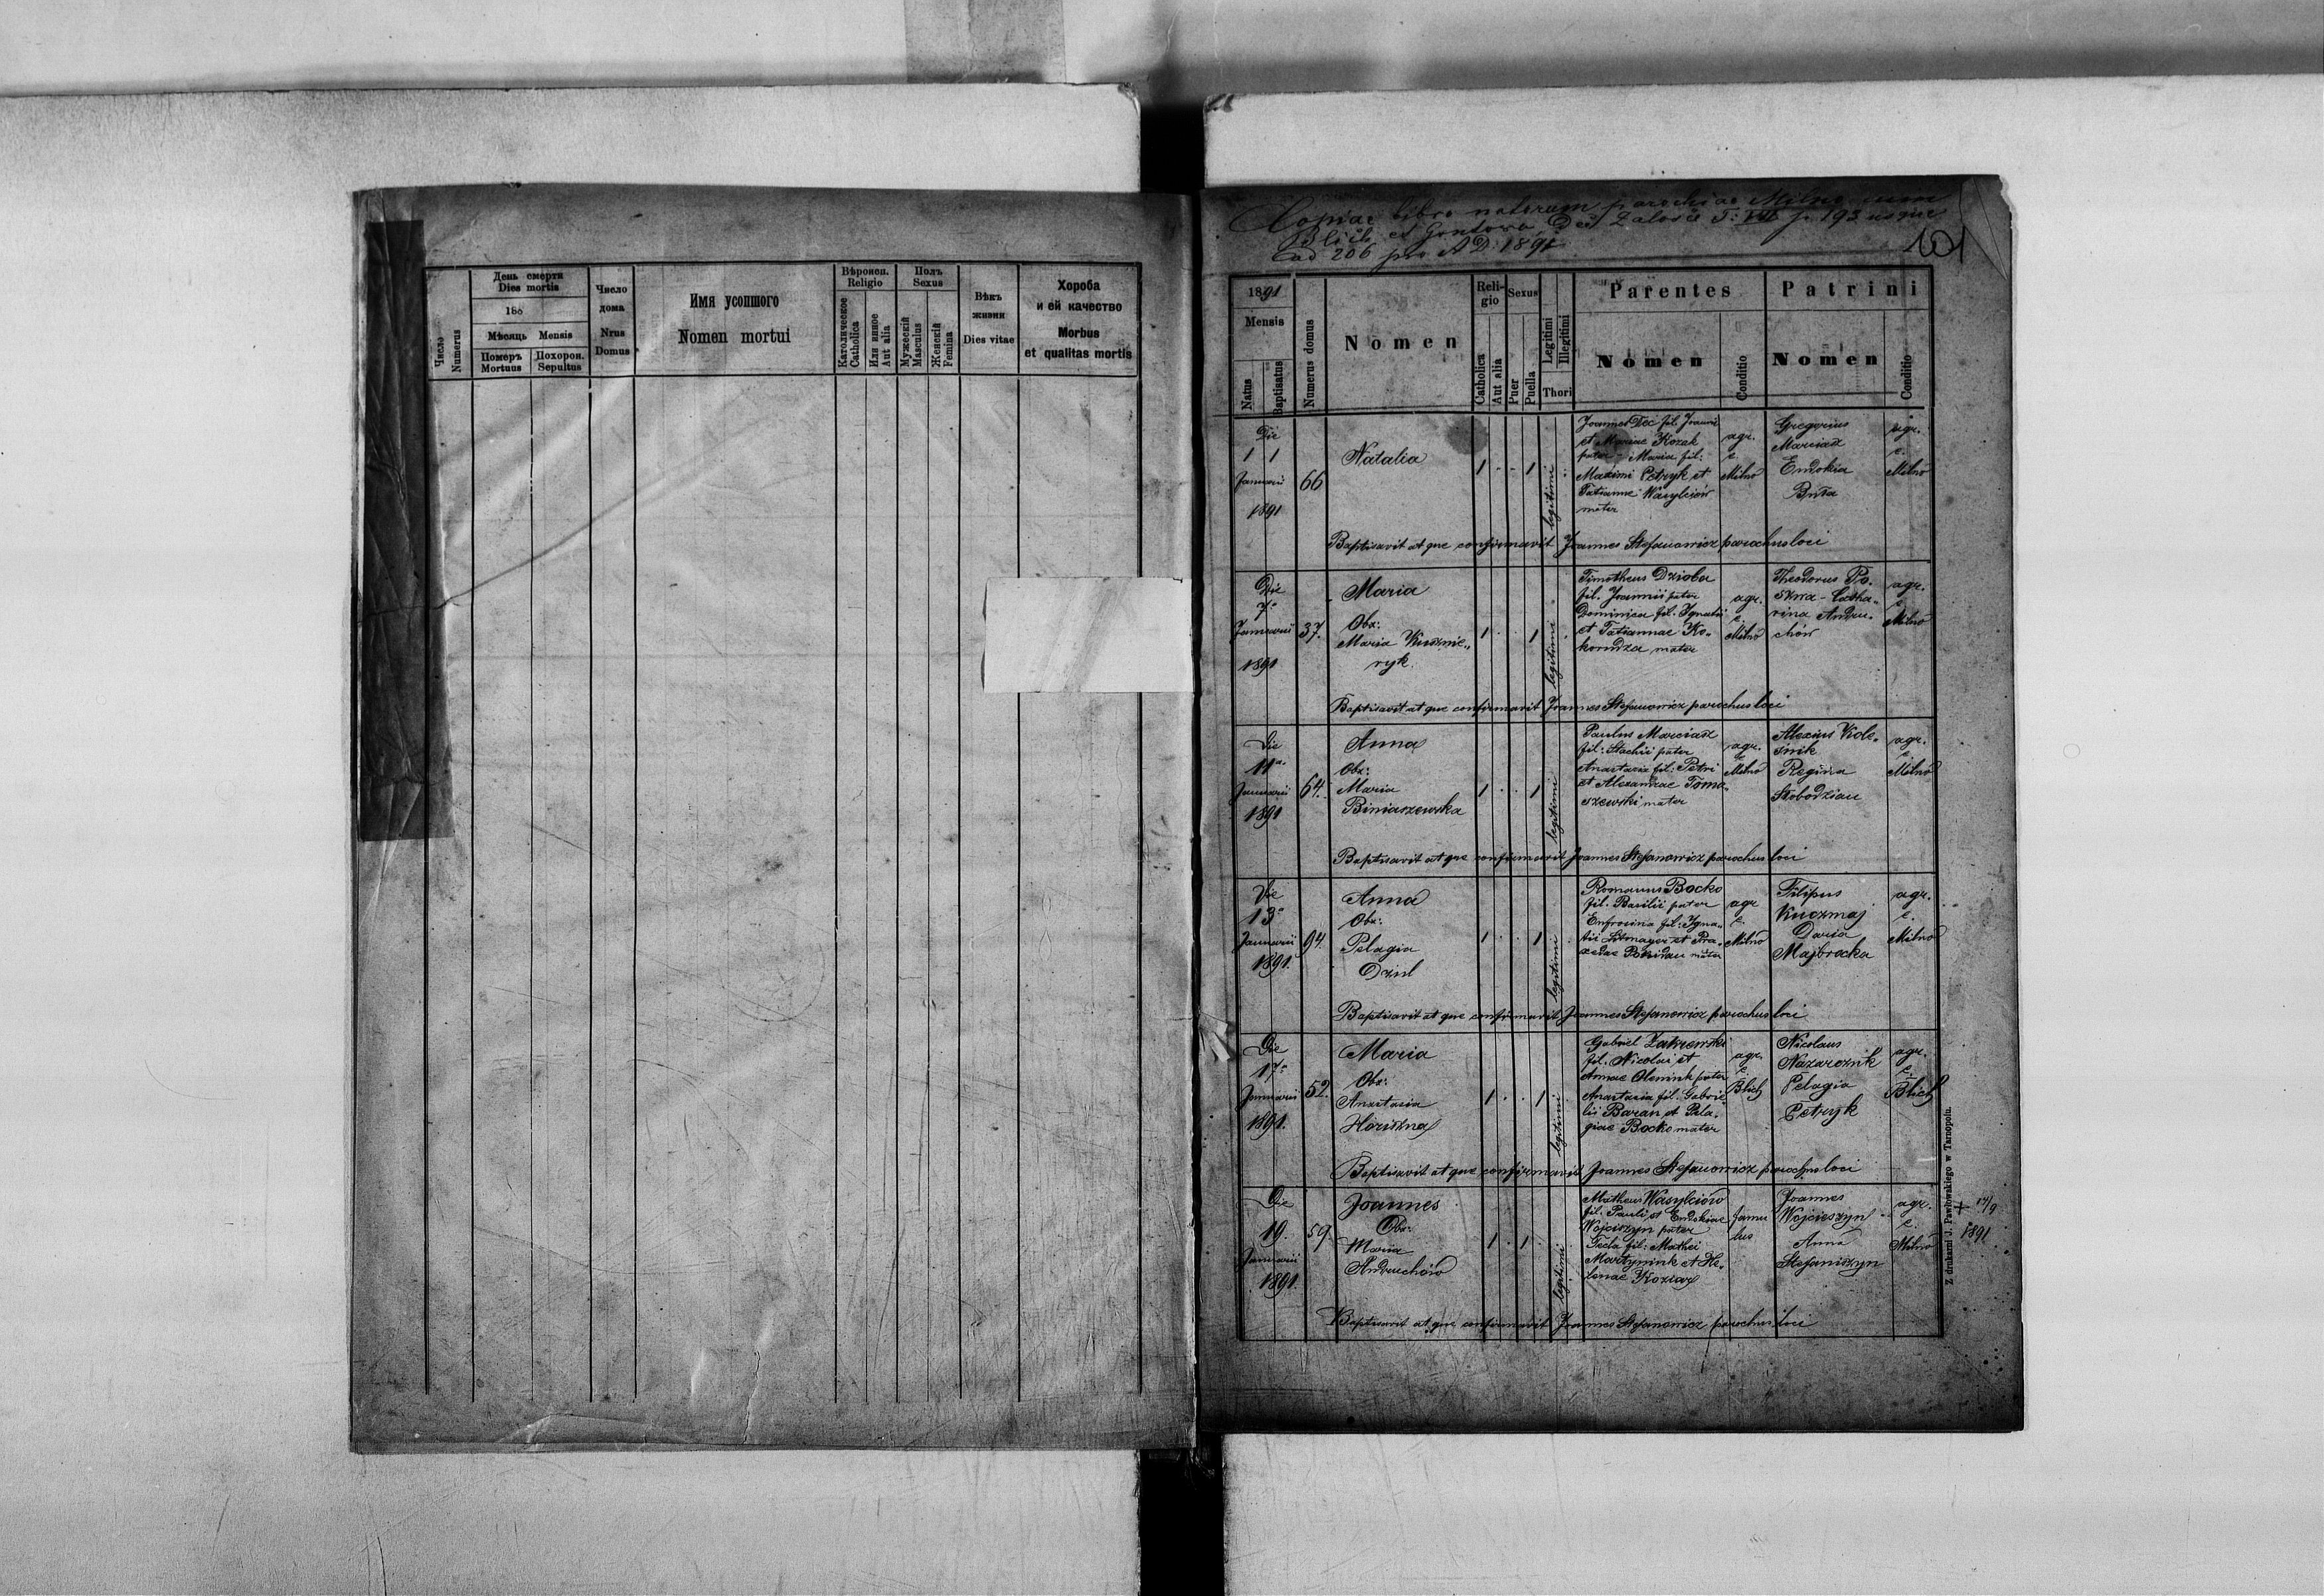 Число
Numerus
День смерти
Dies mortis
188
Мѣсяць Mensis
Померъ
Mortuus
Похорон.
Sepultus
Число
дома
Nrus
Domus
Имя усопшого
Nomen mortui
Вѣроисп.
Religio
Католическое
Catholica
Или инное
Aut alia
Полъ
Sexus
Мужескій
Masculus
Женскій
Femina
Вѣкъ
жизни
Dies vitae
Хороба
и ей качество
Morbus
et qualitas mortis
Copiae libro natorum parochiae Milno cum
Blich et Gontowa, Załosce T: VII p. 193 usque
ad 206 pro A D: 1891
101
1891
Mensis
Natus
Baptisatus
Numerus domus
Nomen
Religio
Catholica
Aut alia
Sexus
Puer
Puella
Legitimi
Illegitimi
Thori
Parentes
Nomen
Conditio
Patrini
Nomen
Conditio
Die
1 1
Januarii
1891
66
Natalia
1 . . 1
legitimi
Joannes Dec fil. Joanni
et Mariae Kozak
pater - Maria fil:
Maximi Petryk et
Tatianne Wasylciów
mater
agr.
e
Milno
Gregorius
Marciasz
Eudokia
Buta
agr.
e.
Milno
Baptisavit atque confirmavit Joannes Stefanowicz parochus loci
Die
7
Januarii
1891
37.
Maria
Obx:
Maria Kusznie„
ryk.
1 . . 1
legitimi
Timotheus Dzioba
fil. Joannii pater
Dominica fil. Ignatii
et Tatiannae Ko„
korudza mater
agr.
e.
Milno
Theodorus Pa„
szwa - Catha„
rina Andru„
chów
agr.
e
Milno
Baptisavit atque confirmavit Joannes Stefanowicz parochus loci
Die
11a
Januarii
1891
64.
Anna
Obx:
Maria
Biniaszewska
1 . . 1
legitimi
Paulus Marciasz
fil: Stachii pater
Anastasia fil: Petri
et Alexandrae Toma„
szewski mater
agr.
e
Milno
Alexius Kole„
śnik
Regina
Słobodzian
agr.
e
Milno
Baptisavit atque confirmavit Joannes Stefanowicz parochus loci
Die
13
Januarii
1891.
94.
Anna
Obx:
Pelagia
Dziul
1 . . 1
legitimi
Romanus Bocko
fil. Basilii pater
Eufrosina fil: Igna„
tii et Pra„
xedae mater
agr
e.
Milno
Filipus
Kuczmaj
Daria
Majbrocka
agr.
e.
Milno
Baptisavit atque confirmavit Joannes Stefanowicz parochus loci
Die
17
Januarii
1891.
52.
Maria
Obx:
Anastasia
Horiszna
1 . . 1
legitimi
Gabriel Zakrewski
fil. Nicolai et
Annae Oleniuk pater
Anastasia fil: Gabrie„
lis Baran et Pela„
giae Bocko mater
agr.
e.
Blich
Nicolaus
Nazarcznik
Pelagia
Petryk
agr.
e.
Blich
Baptisavit atque confirmavit Joannes Stefanowicz parochus loci
Die
19.
Januarii
1891.
59
Joannes
Obx:
Maria
Andruchów
1 . 1 .
legitimi
Matheus Wasylciów
fil. Pauli et Eudokiae
Wojciszyn pater
Tecla fil: Mathei
Martyniuk et He„
lenae Koziar
famu
lus
Joannes
Wojcieszyn
Anna
Stefaniszyn
agr.
e.
Milno
+ 17/9
1891
Baptisavit atque confirmavit Joannes Stefanowicz parochus loci
Z drukarni J. Pawłowskiego w Tarnopolu.